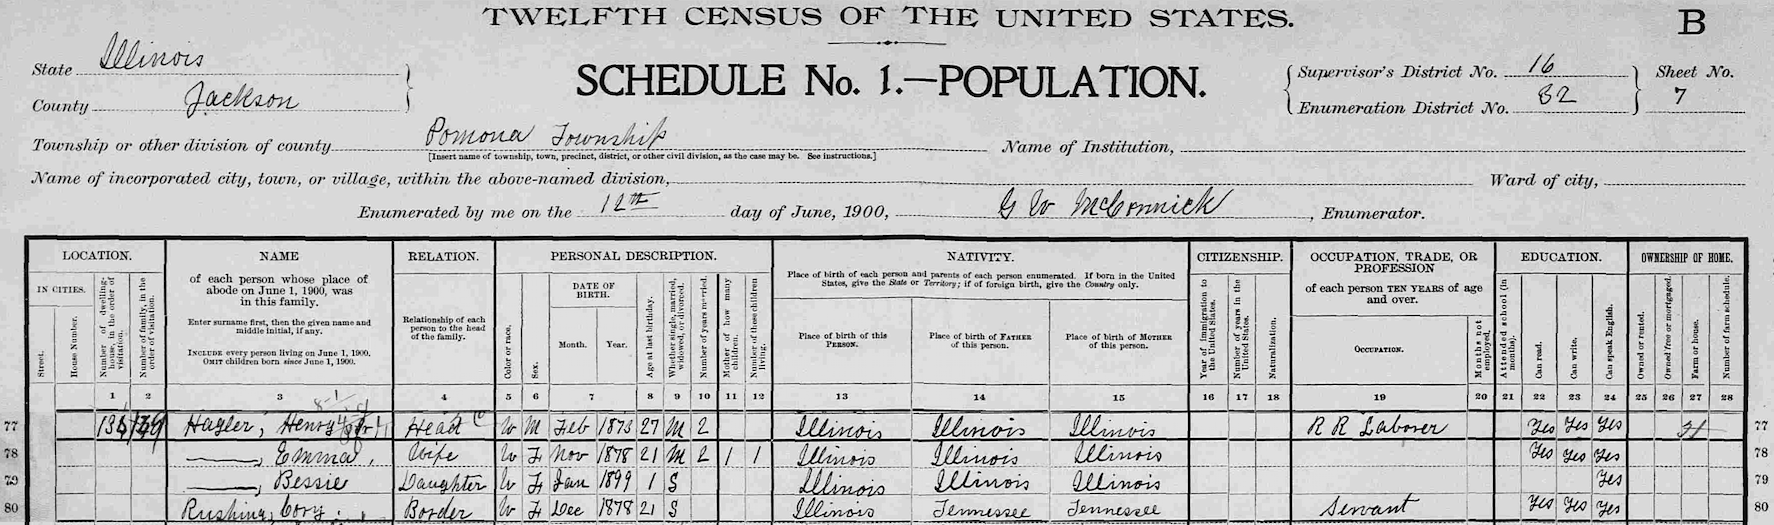 TWELFTH CENSUS OF THE UNITED STATES.
B
State Illinois
County Jackson
SCHEDULE No. 1.—POPULATION.
Supervisor's District No. 16
Enumeration District No. 82
Sheet No.
7
Township or other division of county Pomona Township
[Insert name of township, town, precinct, district, or other civil division, as the case may be. See instructions.]
Name of Institution,
Name of incorporated city, town, or village, within the above-named division,
Ward of city,
Enumerated by me on the 12th day of June, 1900, G W McCormick, Enumerator.
LOCATION.
IN CITIES.
Street.
House Number.
Number of dwelling-house, in the order of visitation.
Number of family, in the order of visitation.
NAME
of each person whose place of abode on June 1, 1900, was in this family.
Enter surname first, then the given name and middle initial, if any.
INCLUDE every person living on June 1, 1900.
OMIT children born since June 1, 1900.
RELATION.
Relationship of each person to the head of the family.
PERSONAL DESCRIPTION.
Color or race.
Sex.
DATE OF BIRTH.
Month.
Year.
Age at last birthday.
Whether single, married, widowed, or divorced.
Number of years married.
Mother of how many children.
Number of these children living.
NATIVITY.
Place of birth of each person and parents of each person enumerated. If born in the United States, give the State or Territory; if of foreign birth, give the Country only.
Place of birth of this PERSON.
Place of birth of FATHER of this person.
Place of birth of MOTHER of this person.
CITIZENSHIP.
Year of immigration to the United States.
Number of years in the United States.
Naturalization.
OCCUPATION, TRADE, OR PROFESSION
of each person TEN YEARS of age and over.
OCCUPATION.
Months not employed.
EDUCATION.
Attended school (in months).
Can read.
Can write.
Can speak English.
OWNERSHIP OF HOME.
Owned or rented.
Owned free or mortgaged.
Farm or house.
Number of farm schedule.
1 2 3 4 5 6 7 8 9 10 11 12 13 14 15 16 17 18 19 20 21 22 23 24 25 26 27 28
77 Hagler, Henry Head W M Feb 1873 27 M 2 Illinois Illinois Illinois R R Laborer Yes Yes Yes H 77
78 ——, Emma, Wife W F Nov 1878 21 M 2 1 1 Illinois Illinois Illinois Yes Yes Yes 78
79 ——, Bessie Daughter W F Jan 1899 1 S Illinois Illinois Illinois Yes 79
80 Rushing, Cory. Border W F Dec 1878 21 S Illinois Tennessee Tennessee Servant Yes Yes Yes 80